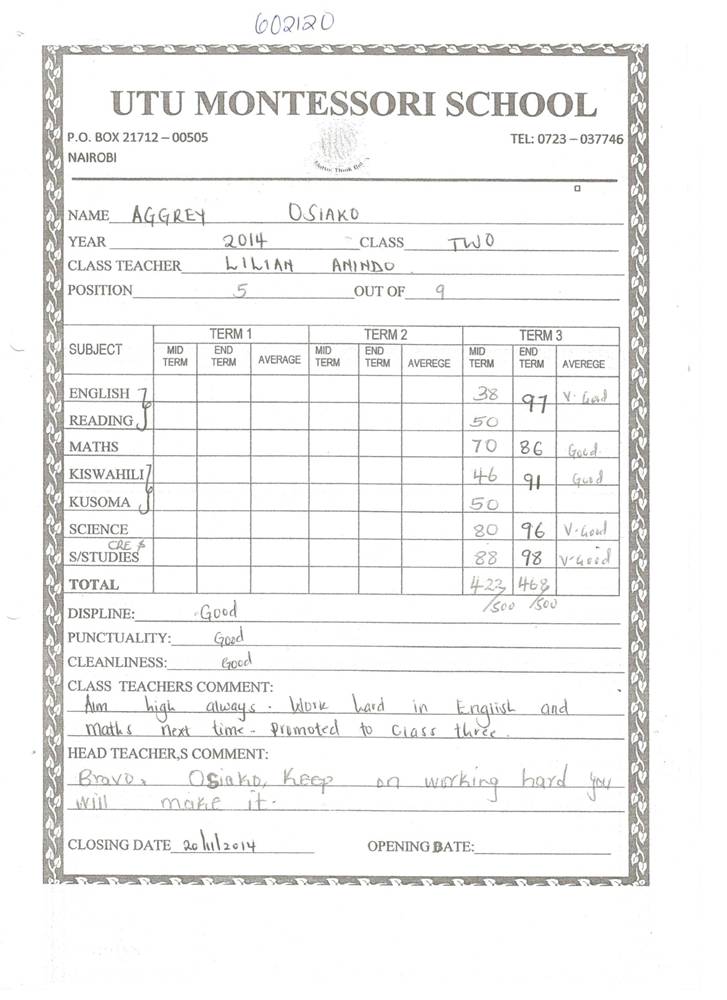 602120
UTU MONTESSORI SCHOOL
P.O. BOX 21712 – 00505 TEL: 0723 – 037746
NAIROBI
NAME AGGREY OSIAKO
YEAR 2014 CLASS TWO
CLASS TEACHER LILIAN ANINDO
POSITION 5 OUT OF 9
SUBJECT TERM 1 TERM 2 TERM 3
MID TERM END TERM AVERAGE MID TERM END TERM AVEREGE MID TERM END TERM AVEREGE
ENGLISH 38 97 V. Good
READING 50
MATHS 70 86 Good
KISWAHILI 46 91 Good
KUSOMA 50
SCIENCE 80 96 V-Good
CRE &
S/STUDIES 88 98 V-Good
TOTAL 422 468
/500 /500
DISPLINE: Good
PUNCTUALITY: Good
CLEANLINESS: Good
CLASS TEACHERS COMMENT:
Aim high always. Work hard in English and
maths next time - Promoted to class three.
HEAD TEACHER,S COMMENT:
Bravo, Osiako, Keep on working hard you
will make it.
CLOSING DATE 20/11/2014 OPENING DATE: